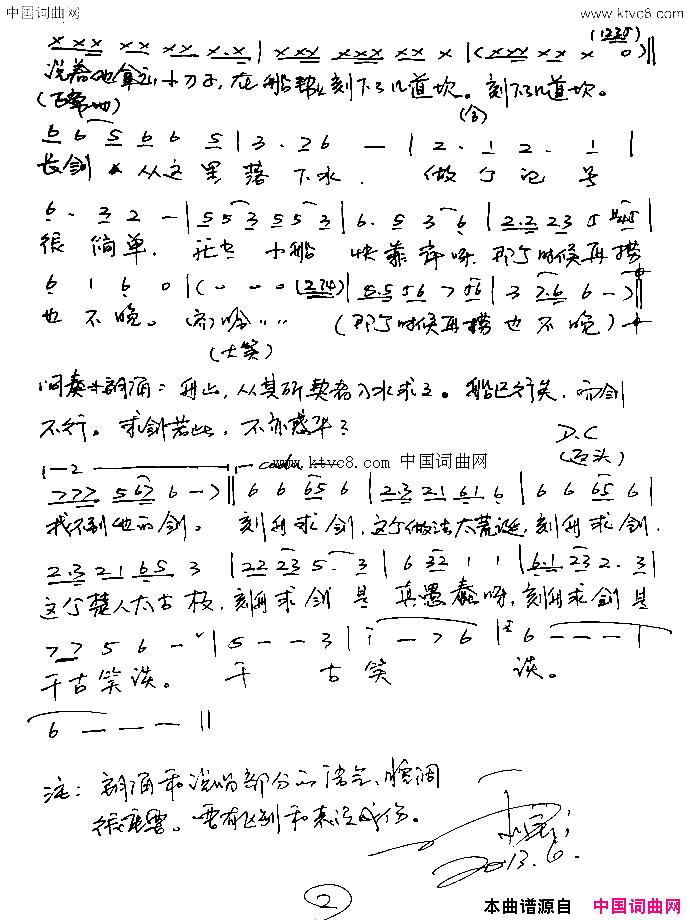 中国词曲网 www.ktvc8.com
(1235)
x x x x x x x x.x | x x x x x x x x x | (x x x x x x 0) ||
说着他拿 小刀子,在船帮上刻下几道坎。刻下几道坎。
(合)
6 6 5 6 6 5 | 3 . 2 6 — | 2 . 1 2 . 1 |
长剑 从这里落下水. 做个记号
6 . 3 2 — | 5 5 3 5 5 3 | 6 . 5 3 6 | 2.2 2 3 5
很简单. 小船快靠岸呀.那个时候再捞
6 1 6 0 | ( - - 0 (234) | 6.5 5 6 7 5 6 | 3 7.6 6 — ) ||
也不晚。 哈 " " (那个时候再捞也不晚)
(大笑)
间奏+朗诵:舟止,从其所契者入水求之。船已行矣,而剑
不行。求剑若此,不亦惑乎?
D.C
www.ktvc8.com 中国词曲网
1-2 coda
7 7 7 5 6 7 6 — > || 6 6 6 5 6 | 2.3 2 1 6 1 6 | 6 6 6 5 6 |
我不到他的剑。 刻舟求剑,这个做法太荒诞,刻舟求剑.
2.3 2 1 6 5 3 | 2 2 2 3 5 . 3 | 6 3 2 1 1 | 6.1 2 3 2 . 3 |
这个楚人太古板,刻舟求剑是真愚蠢呀,刻舟求剑是
7 7 5 6 - | 5 - - 3 | i — 7 6 | 6 - - - |
千古笑谈。 千古笑谈。
6 — — — ||
注:朗诵和说唱部分的语气、腔调
很重要。要有区别和表演成份。
2013.6.
2
本曲谱源自 中国词曲网